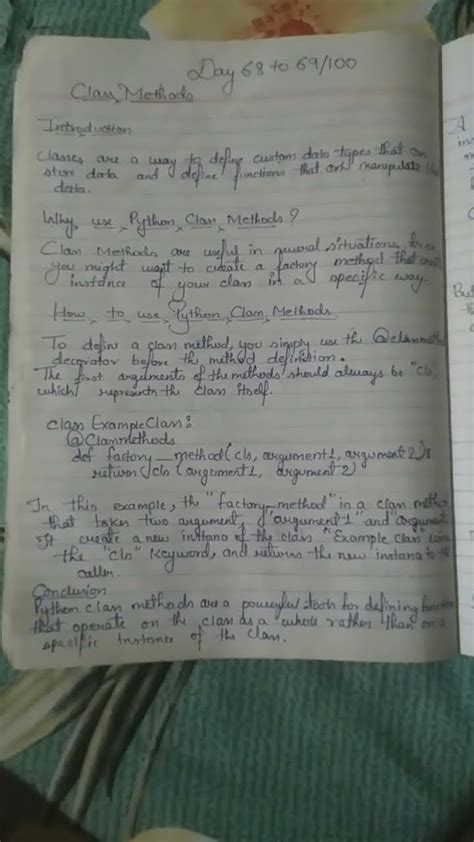 Day 68 to 69/100
Class Methods
Introduction
Classes are a way to define custom data types that can
store data and define functions that can manipulate
data.
Why use Python Class Methods?
Class Methods are useful in several situations, for
you might want to create a factory method that
instance of your class in a specific way.
How to use Python Class Methods
To define a class method, you simply use the @classmethod
decorator before the method definition.
The first arguments of the methods should always be "cls,
which represents the class itself.
class ExampleClass:
@Classmethods
def factory_method(cls, argument1, argument2):
return cls (argument1, argument2)
In this example, the "factory_method" is a class method
that takes two argument, "argument1" and
It create a new instans of the class "Example Class
the "cls" Keyword, and returns the new instans to
caller.
Conclusion
Python class methods are a powerful tools for defining
that operate on the class as a whole rather than on
specific instance of the class.